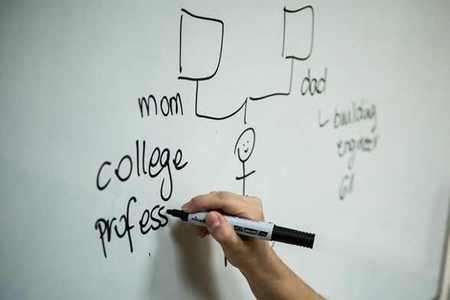 mom
dad
building
engineer
college
profess